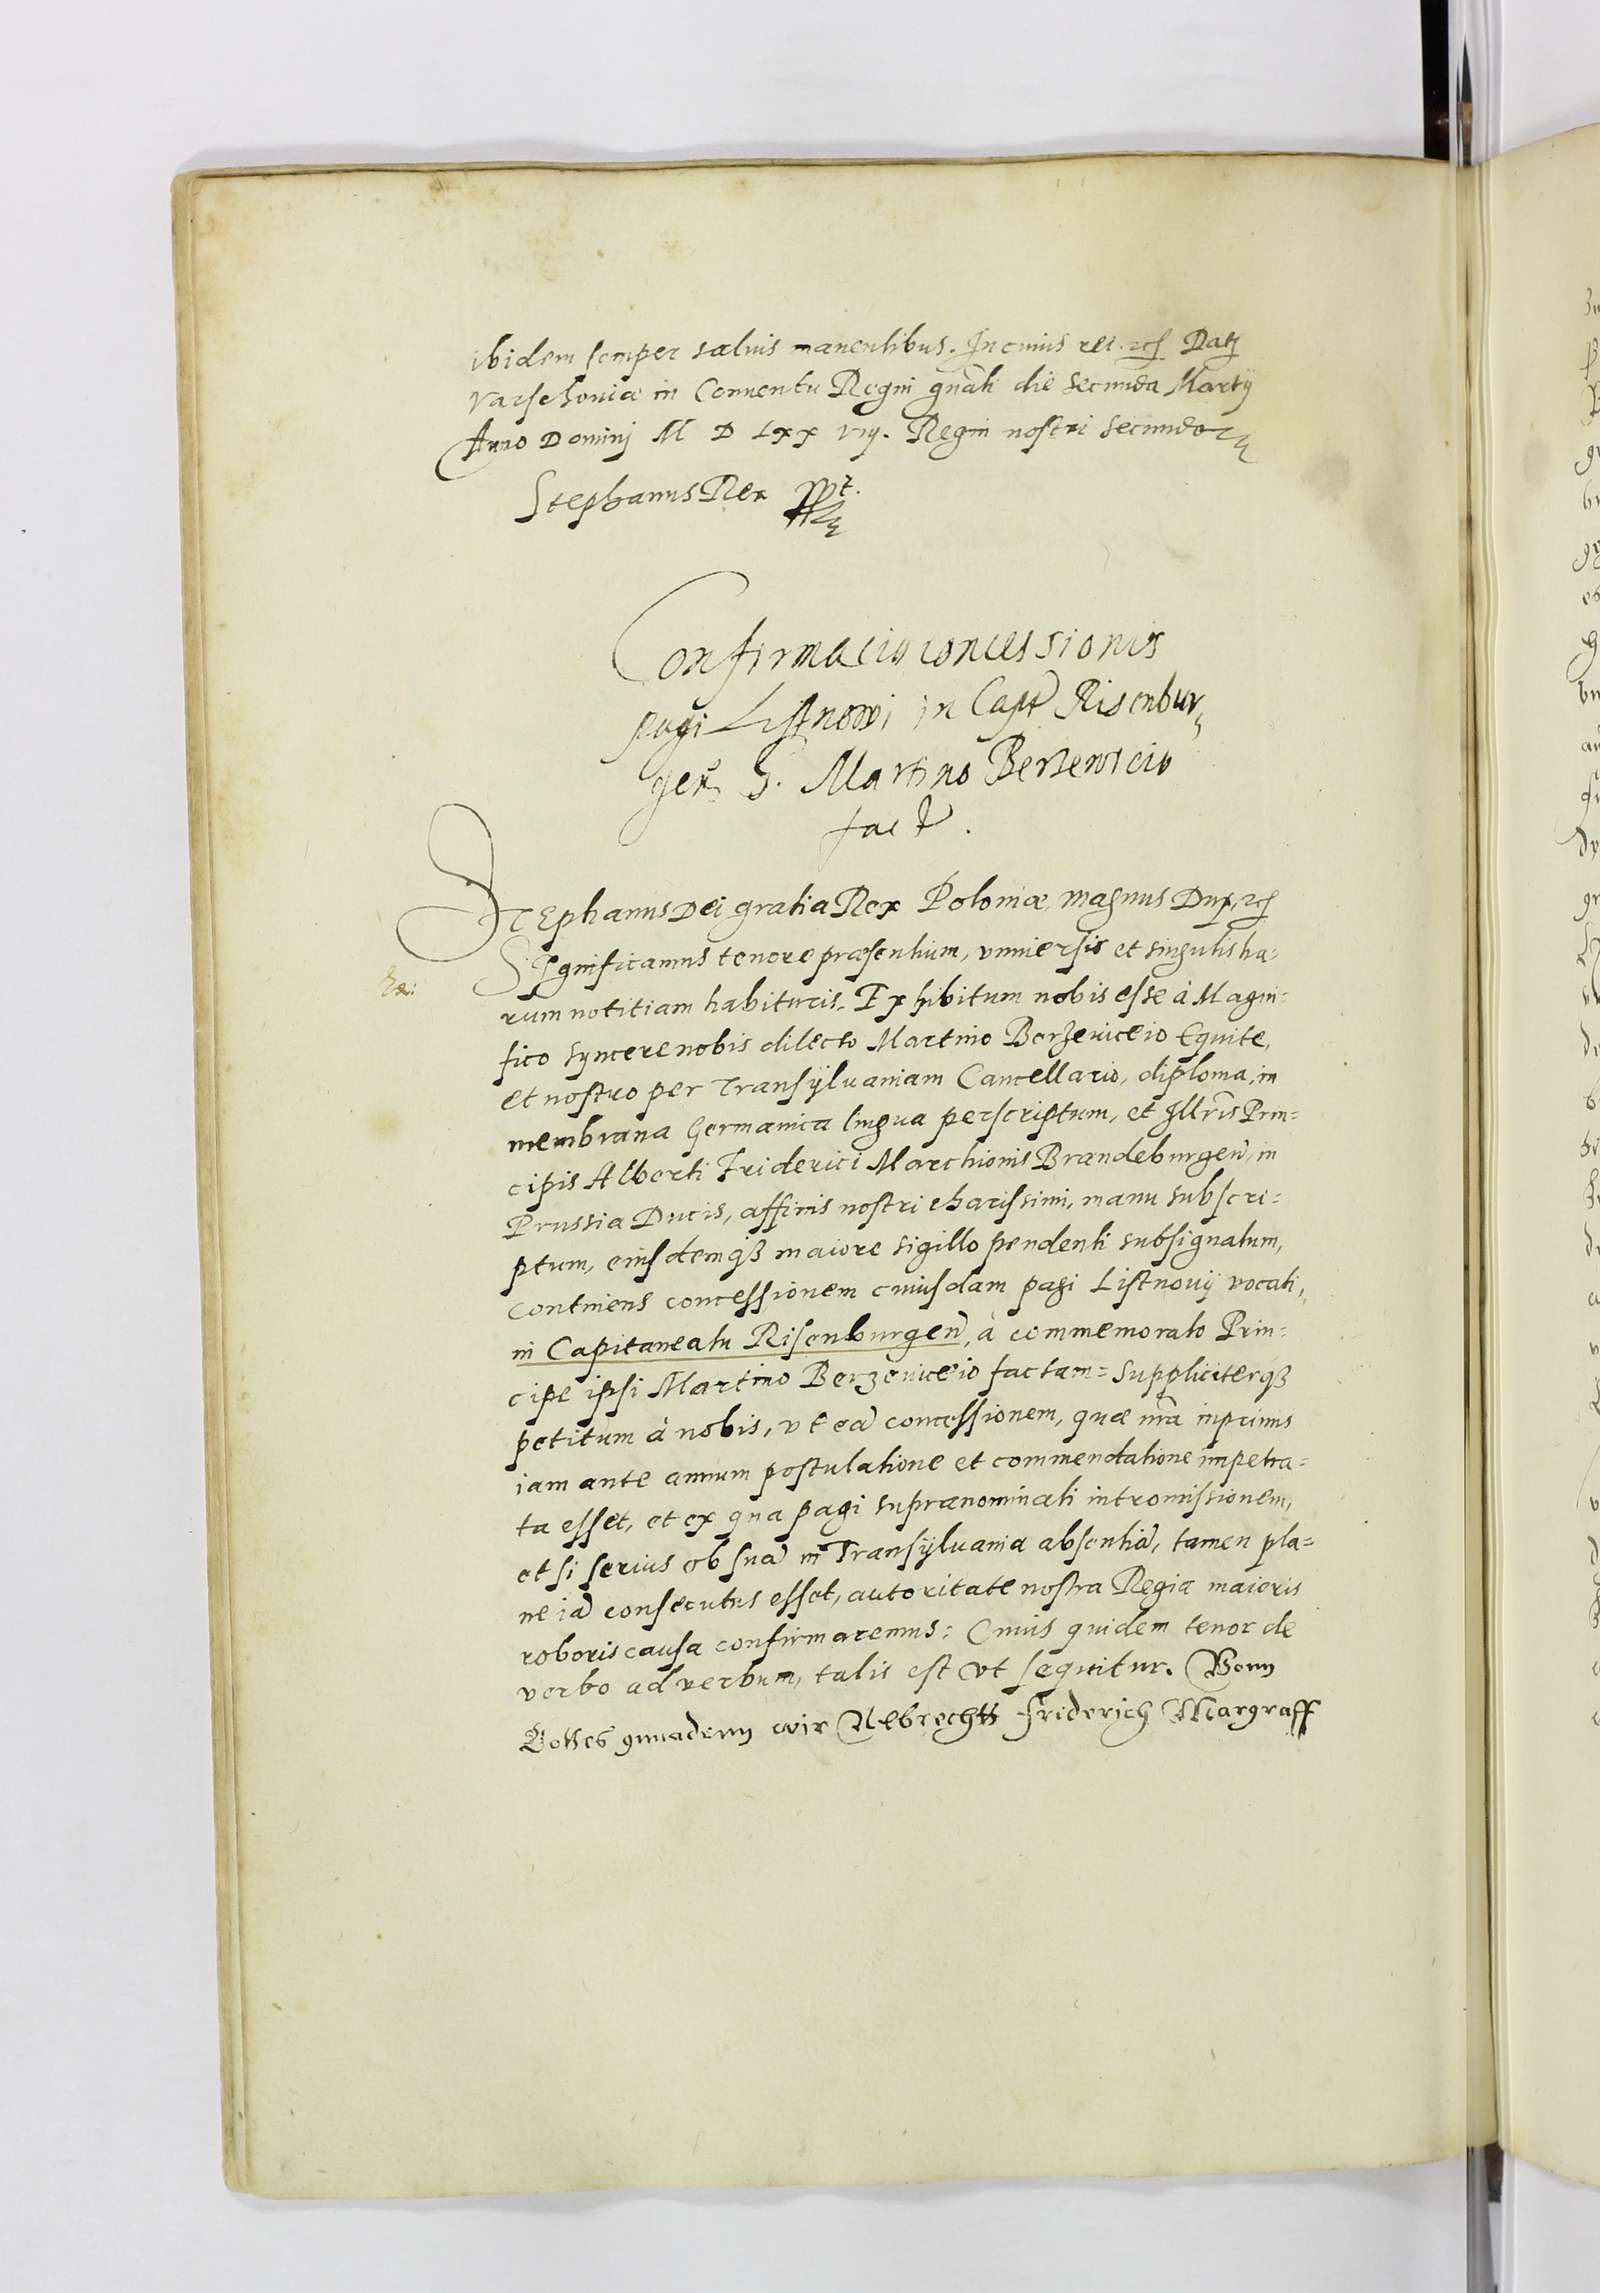 ibidem semper saluis manentibus. In cuius rei. etc. Datj
Varschouiæ in Conuentu Regni gnãli die secunda Martij
Anno Dominj M D Lxx viij. Regni nostri secundo
Stephanus Rex ppt.
Confirmacio concessionis
pagi Listnowi in Capt Risenbur
geñ G. Martino Berzewicio
fact.
STEphanus Dei gratia Rex Poloniæ, magnus Dux, etc.
SIgnificamus tenore præsentium, vniuersis et singulis ha-
rum notitiam habituris. Exhibitum nobis esse à Magni-
fico syncere nobis dilecto Martino Berzeuiceio Equite,
et nostro per Transyluaniam Cancellario, diploma, in
membrana Germanica lingua perscriptum, et Illris Prin-
cipis Alberti Friderici Marchionis Brandeburgeñ, in
Prussia Ducis, affinis nostri charissimi, manu subscri-
ptum, eiusdemqȝ maiore sigillo pendenti subsignatum,
continens concessionem cuiusdam pagi Listnouij vocati,
in Capitaneatu Risenburgeñ, à commemorato Prin-
cipe ipsi Martino Berzeuiceio factam: Suppliciterqȝ
petitum à nobis, vt eã concessionem, quæ nrã inprimis
iam ante annum postulatione et commendatione impetra-
ta esset, et ex qua pagi supranominati intromissionem,
etsi serius ob suã in Transyluania absentiã, tamen pla-
ne iã consecutus esset, autoritate nostra Regia maioris
roboris causa confirmaremus: Cuius quidem tenor de
verbo ad verbum, talis est vt sequitur. Vonn
Gottes gnnadenn wir Albrechtt Friderich Margraff